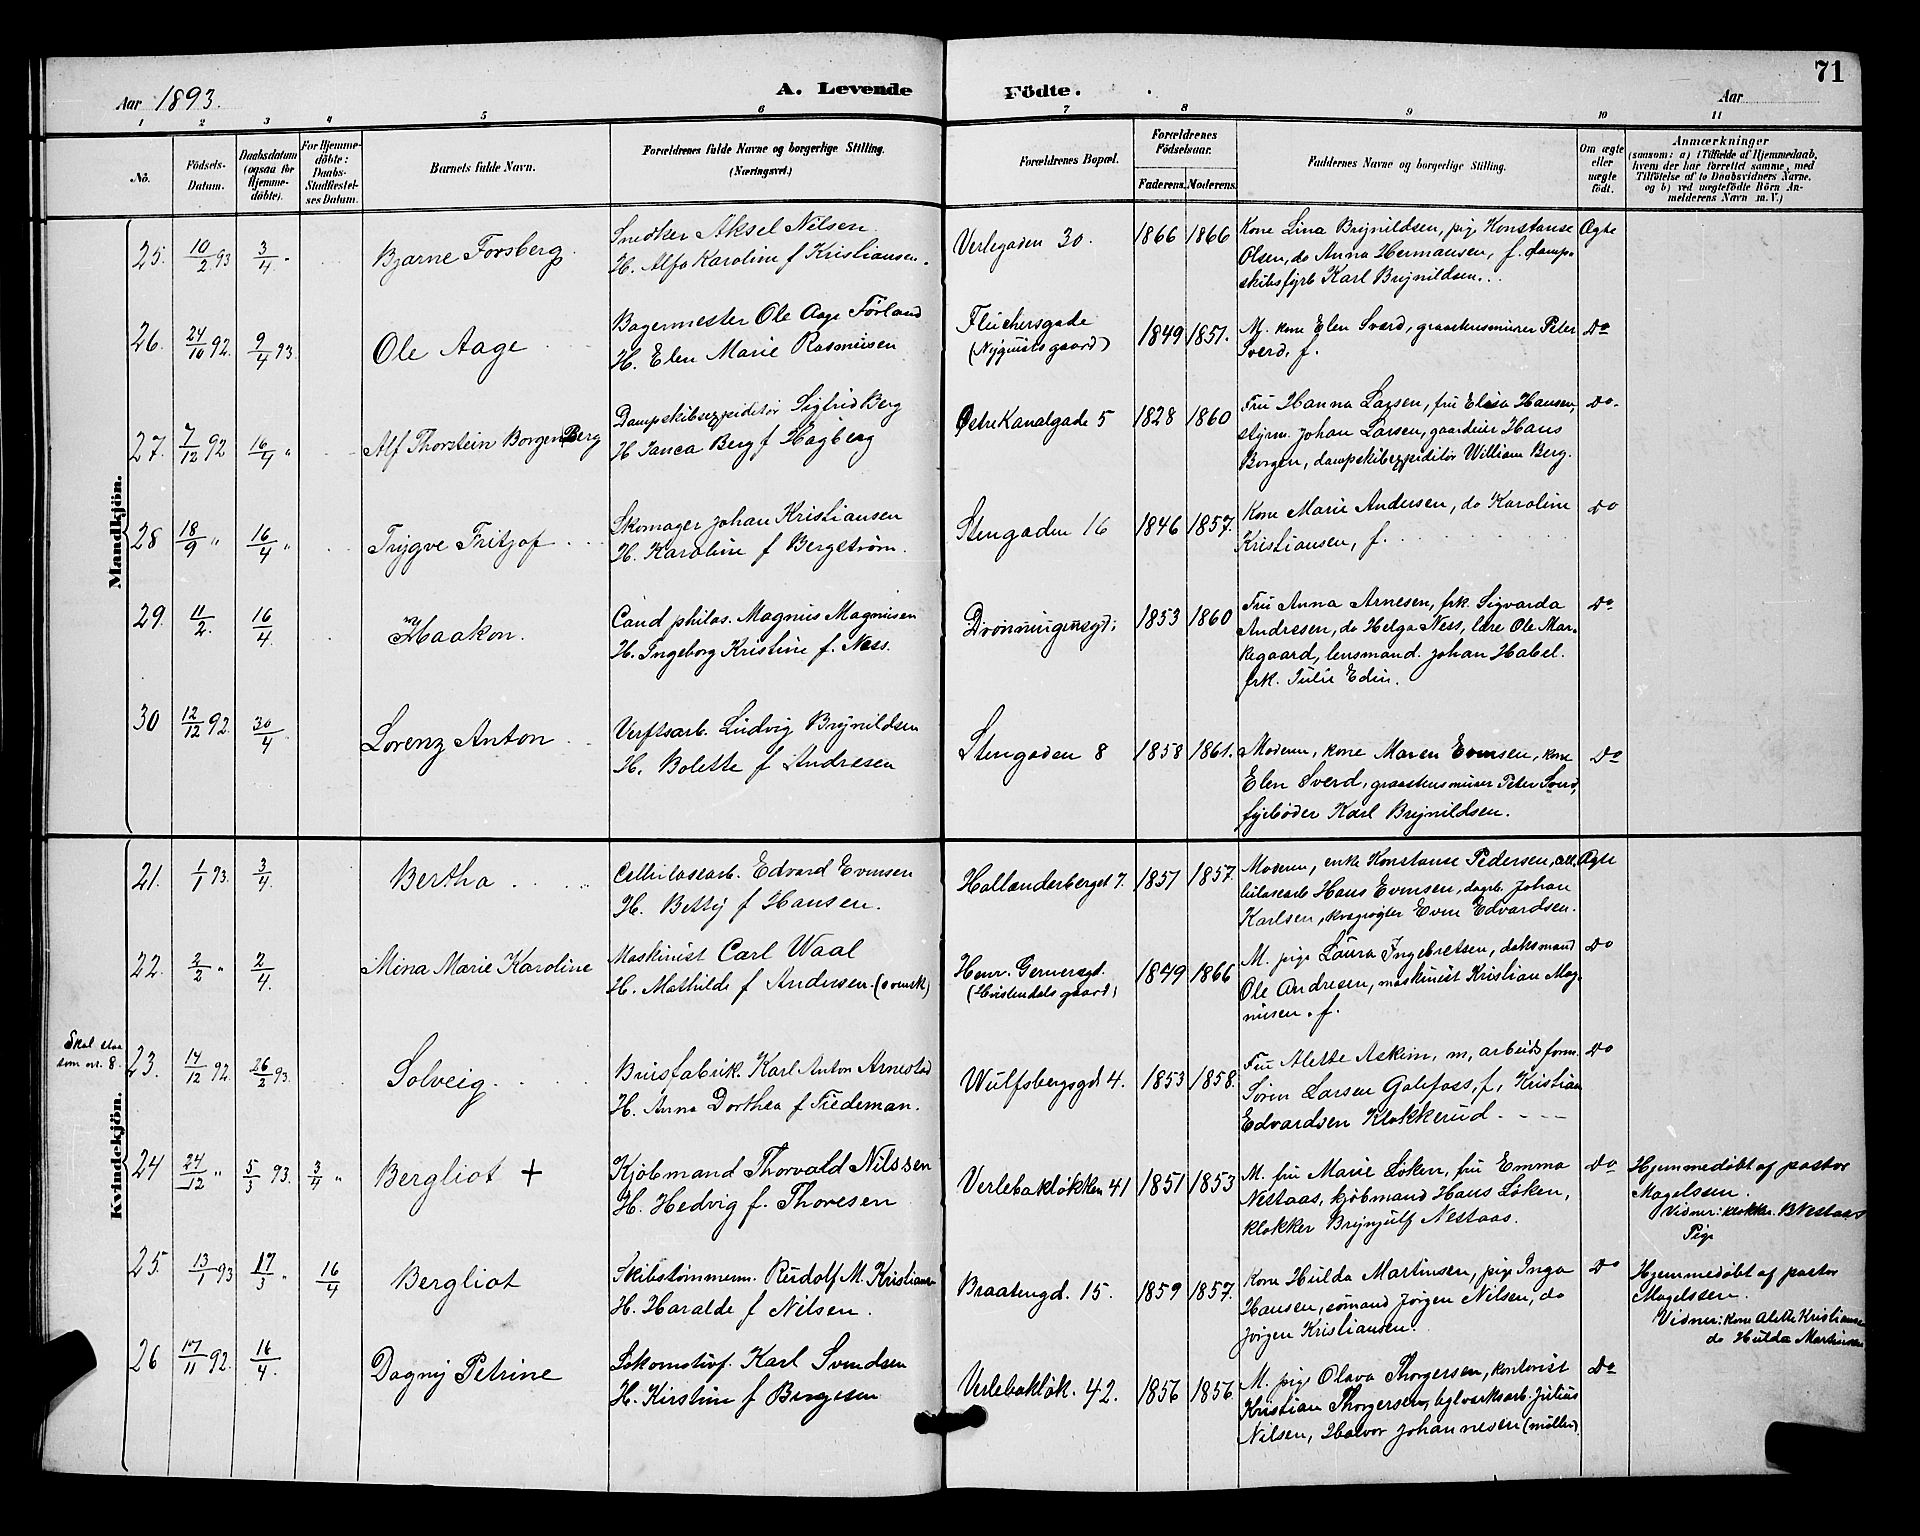 71
Aar 1893.
A. Levende Födte.
Aar
1 2 3 4 5 6 7 8 9 10 11
Nö.
Födsels-Datum.
Daabsdatum (ogsaa for Hjemme-döbte).
For Hjemme-döbte: Daabs-Stadfæstel-ses Datum.
Barnets fulde Navn.
Forældrenes fulde Navne og borgerlige Stilling. (Næringsvei.)
Forældrenes Bopæl.
Forældrenes Födselsaar.
Faderens. Moderens.
Faddernes Navne og borgerlige Stilling.
Om ægte eller uægte födt.
Anmærkninger
(saasom: a) i Tilfælde af Hjemmedaab, hvem der har forrettet samme, med Tilföielse af to Daabsvidners Navne, og b) ved uægtefödte Börn An-melderens Navn m. V.)
Mandkjön.
25. 10/2 93 3/4 "
Bjarne Forsberg.
Snedker Aksel Nilsen
H. Alfa Karoline f Kristiansen.
Verlegaden 30.
1866 1866
Kone Lina Brynildsen, pige Konstanse
Olsen, do Anna Hermansen, f. damp-
skibsfyrb Karl Brynildsen.
Ægte
26. 24/10 92. 9/4 93.
Ole Aage
Bagermester Ole Aage Førland
H. Elen Marie Rasmusen
Fleichersgade
(Nyquists gaard)
1849 1851.
M. kone Elen Sverd, graastensmurer Peter
Sverd, f.
Do
27. 7/12 92 16/4 "
Alf Thorstein Borgen Berg
Dampskibsexpeditör Sigfrid Berg
H Janca Berg f Hagberg
Østre Kanalgade 5
1828 1860
Fru Hanna Larsen, fru Elisa Hansen,
styrm. Johan Larsen, gaardeier Hans
Borgen, dampskibsexpeditör William Berg.
Do.
28 18/9 " 16/4 "
Trygve Fritjof
Skomager Johan Kristiansen
H. Karoline f Bergstrøm.
Stengaden 16
1846 1857.
Kone Marie Andersen, do Karoline
Kristiansen, f.
Do
29. 11/2. 16/4.
Haakon.
Cand philos. Magnus Magnusen
H. Ingeborg Kristine f. Ness.
Dronningensgd.
1853 1860
Fru Anna Arnesen, frk. Sigvarda
Andresen, do Helga Ness, lærer Ole Mar-
kegaard, lensmand. Johan Habel.
frk. Julie Edin.
Do
30 12/12 92. 30/4
Lorenz Anton
Verftsarb. Ludvig Brynildsen
H. Bolette f Andresen
Stengaden 8
1858 1861.
Moderen, kone Maren Evensen, kone
Elen Sverd, graastensmurer Peter Sverd,
fyrbøder Karl Brynildsen.
Do
Kvindekjön.
21. 1/1 93. 3/4.
Bertha
Cellulosearb. Edvard Evensen
H. Betty f Hansen.
Hollenderberget 7.
1851 1857.
Moderen, enke Konstanse Pedersen, cel-
lulosearb Hans Evensen, dagarb. Johan
Karlsen, kvægrögter Even Edvardsen.
Ægte
22. 2/2 " 2/4.
Mina Marie Karoline
Maskinist Carl Waal
H. Mathilde f Andersen. (svensk)
Henr. Gernersgd.
(Hvistendals gaard)
1849 1866
M. pige Laura Ingebretsen, doksmand
Ole Andresen, maskinist Kristian Mag-
nusen. f.
Do
Skal staa
som nr. 8.
23. 17/12 92. 26/2 93.
Solveig
Brusfabrik. Karl Anton Arnestad
H. Anna Dorthea f Tiedeman.
Wulfsbergsgd 4.
1853 1858.
Fru Alette Askim, m, arbeidsform.
Søren Larsen Galefoss, f, Kristian
Edvardsen Klokkerud.
Do
24 24/12 " 5/3 93. 3/4 "
Bergliot +
Kjöbmand Thorvald Nilssen
H. Hedvig f. Thoresen
Verlebakløkken 41
1851 1853
M. fru Marie Løken, fru Emma
Nestaas, kjöbmand Hans Løken,
klokker Brynjulf Nestaas.
Do
Hjemmedøbt af pastor
Magelssen.
Vidner: klokker. B Nestaas
Pige
25. 13/1 93 17/3 " 16/4
Bergliot
Skibstømmerm. Rudolf M. Kristiansen
H. Haralde f Nilsen.
Braatengd. 15.
1859 1857.
Kone Hulda Martinsen, pige Inga
Hansen, sømand Jørgen Nilsen, do
Jørgen Kristiansen.
Do
Hjemmedøbt af pastor
Magelssen.
Vidner: kone Alette Kristiansen
do Hulda Martinsen
26 17/11 92. 16/4.
Dagny Petrine
Lokomotivf. Karl Svendsen
H. Kirstine f Bergesen
Verlebakløk. 42.
1856 1856.
M. pige Olava Thorgersen, kontorist
Kristian Thorgersen, teglverksarb. Julius
Nilsen, Halvor Johannesen (møller).
Do